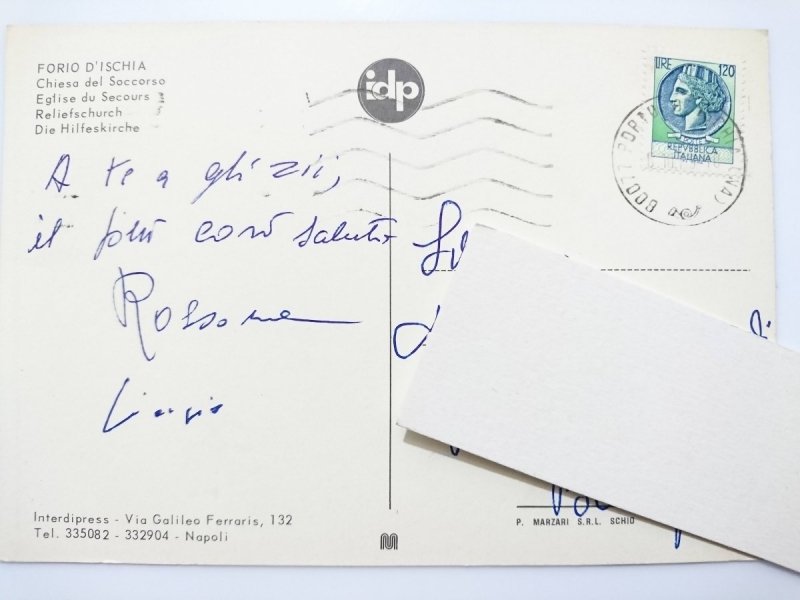 FORIO D'ISCHIA
Chiesa del Soccorso
Eglise du Secours
Reliefschurch
Die Hilfeskirche
idp
LIRE 120
POSTE
REPVBBLICA
ITALIANA
80077
(NA)
A te a gli zii,
il più caro saluto
Rossana
Interdipress - Via Galileo Ferraris, 132
Tel. 335082 - 332904 - Napoli
P. MARZARI S.R.L. SCHIO